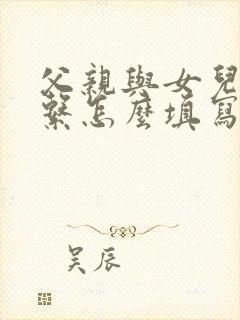 父親與女兒
繫怎麼填寫
吴辰